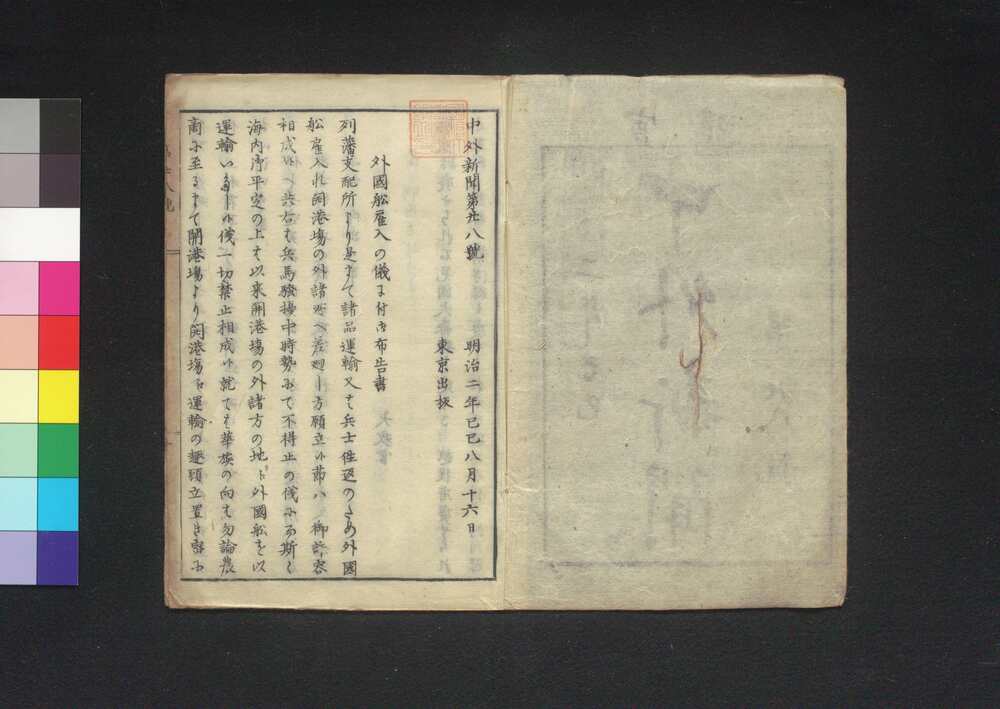 中外新聞第廿八號　明治二年己巳八月十六日
東京出板
外國舩雇入の儀ニ付御布告書
列藩支配所より是まて諸品運輸又は兵士往返のため外國
舩雇入れ開港塲の外諸所へ差廻し方願立候節ハ御許容
相成候へ共右は兵馬騒擾中時勢にて不得止の儀に有斯く
海内御平定の上は以来開港塲の外諸方の地へ外國舩を以
運輸いたし候儀一切禁止相成候就ては華族の向は勿論農
商に至るまて開港塲より開港塲へ運輸の趣願立置き密に